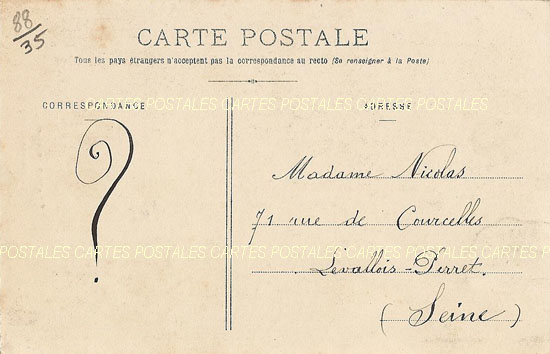 88
35
CARTE POSTALE
Tous les pays étrangers n'acceptent pas la correspondance au recto (Se renseigner à la Poste)
CORRESPONDANCE
ADRESSE
POSTALES CARTES POSTALES CARTES POSTALES
?
Madame Nicolas
71 rue de Courcelles
POSTALES CARTES POSTALES CARTES POSTALES CARTES
Levallois-Perret.
(Seine)